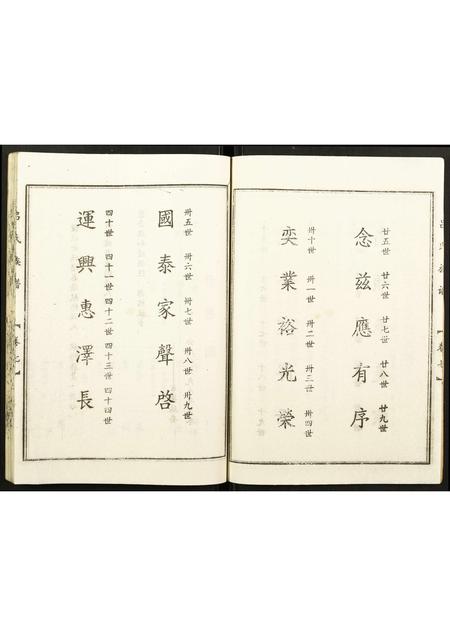 廿五世 廿六世 廿七世 廿八世 廿九世
念茲應有序
卅十世 卅一世 卅二世 卅三世 卅四世
奕業裕光榮
卅五世 卅六世 卅七世 卅八世 卅九世
國泰家聲啓
四十世 四十一世 四十二世 四十三世 四十四世
運興惠澤長
呂氏族譜
【卷七】